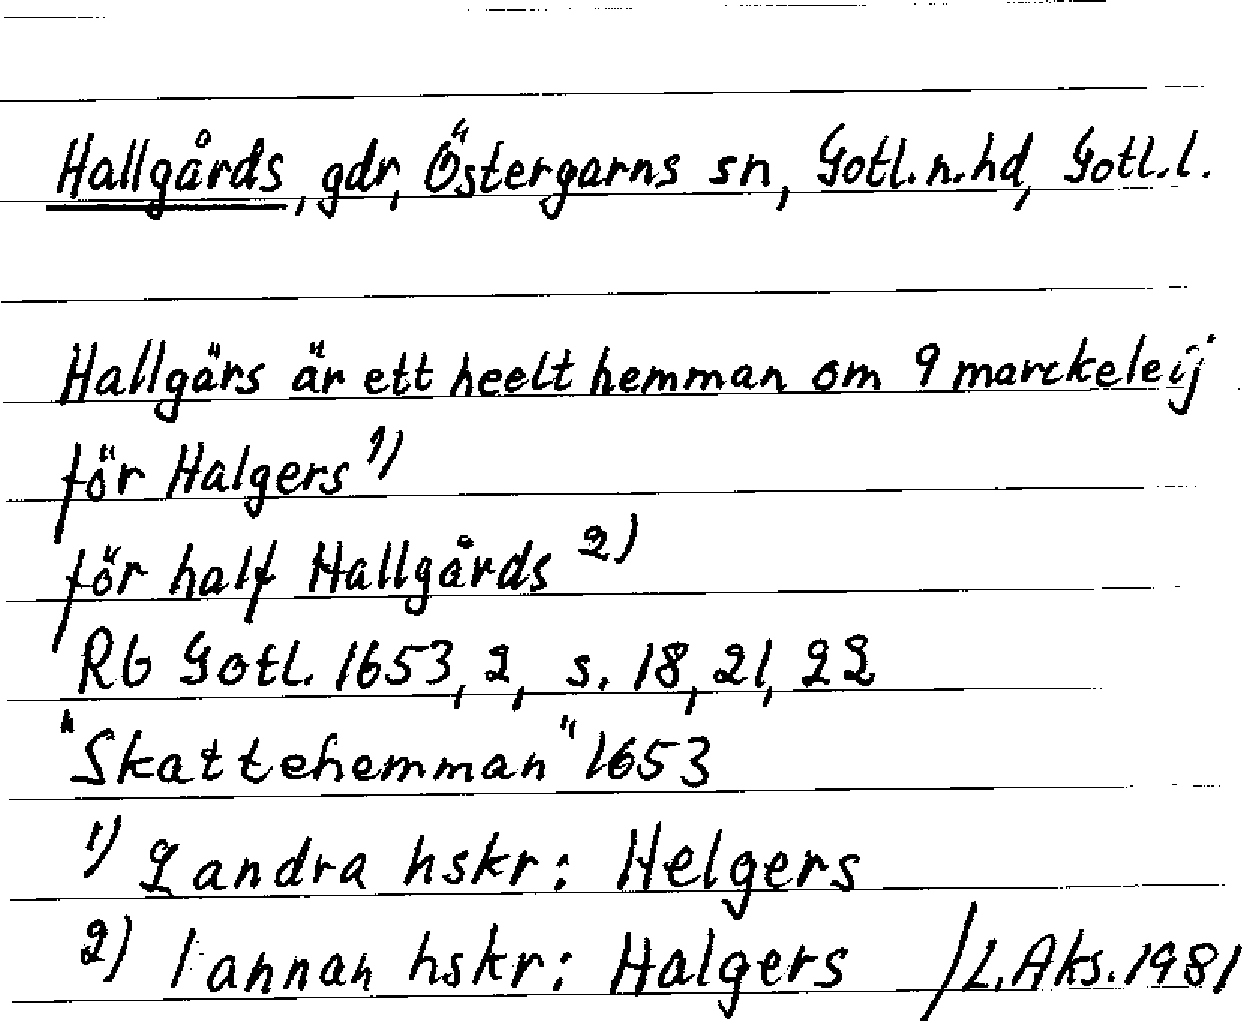 Hallgårds, gdr, Östergarns sn, Gotl.n.hd, Gotl.l.
Hallgärs är ett heelt hemman om 9 marckeleij
för Halgers 1)
för half Hallgårds 2)
Rb Gotl. 1653, 2, s. 18, 21, 22
"Skattehemman" 1653
1) 2 andra hskr: Helgers
2) 1 annan hskr: Halgers /L.Aks.1981